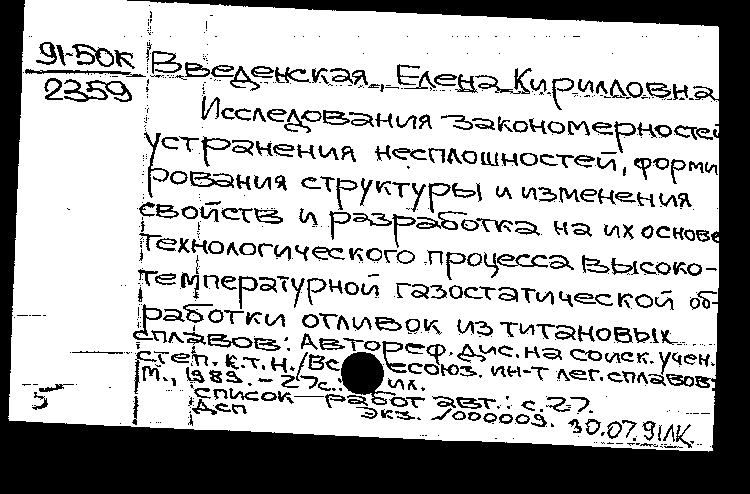 91-50к
2359
Введенская, Елена Кирилловна
Исследования закономерностей
устранения несплошностей, форми
рования структуры и изменения
свойств и разработка на их основе
технологического процесса высоко-
температурной газостатической об-
работки отливок из титановых
сплавов: Автореф. дис. на соиск. учен.
степ. к.т.н. / Вс есоюз. ин-т лег. сплавов.
М., 1989. - 27с. ил.
список работ авт.: с.27.
ДСП экз. №000009. 30.07.91ЛК.
5